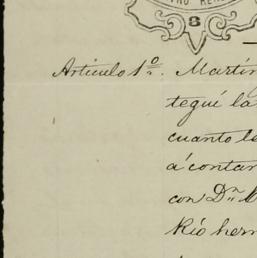 8
Articulo 1º. Martín
tegué la
cuanto le
á contar
con Dn.
Río her